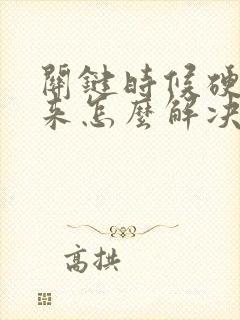 關鍵時候硬
來怎麼解决
高拱